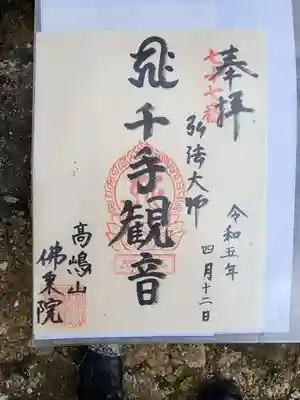 奉拝
七十七番
弘法大師
令和五年
四月十二日
千手観音
高嶋山
佛乗院